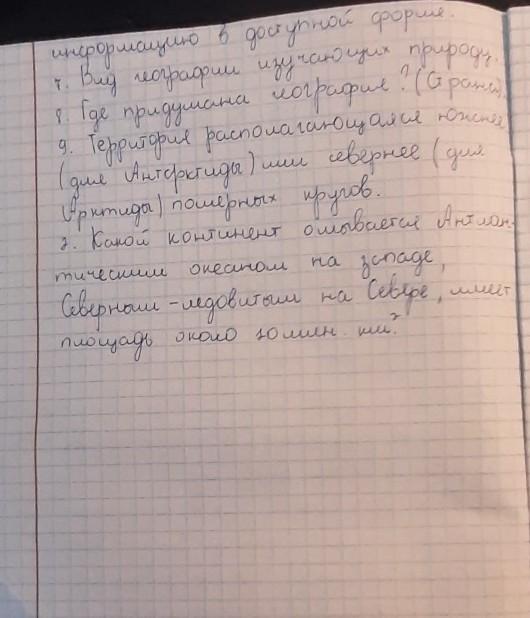 информацию в доступной форме.
7. Вид географии изучающих природу.
8. Где придумана география? (Страна)
9. Территория располагающаяся южнее
(для Антарктиды) или севернее (для
Арктиды) полярных кругов.
2. Какой континент омывается Атлан-
тическим океаном на западе,
Северным-ледовитым на Севере, имеет
площадь около 10 млн. км.²